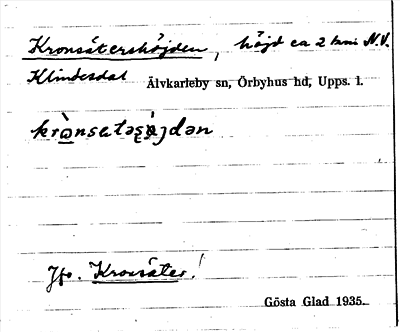 Kronsätershöjden, höjd ca 2 km N.V.
Klindesdal Älvkarleby sn, Örbyhus hd, Upps. l.
Jfr. Kronsäter!
Gösta Glad 1935.